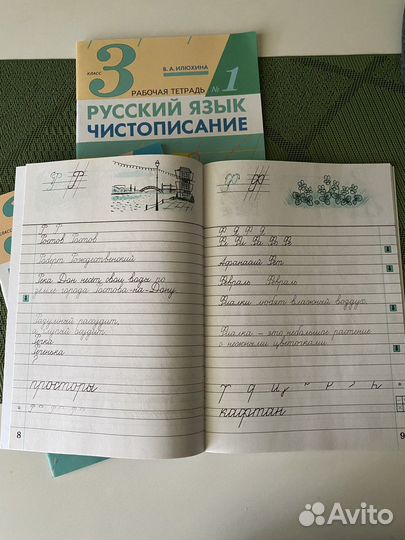 3
КЛАСС
В.А. ИЛЮХИНА
РАБОЧАЯ ТЕТРАДЬ № 1
РУССКИЙ ЯЗЫК
ЧИСТОПИСАНИЕ
КЛАСС
Ростов Ростов
Роберт Рождественский
Река Дон несёт свои воды по
земле города Ростова-на-Дону.
Разумный рассудит,
а глупый осудит.
Речка
Реченька
просторы
8
Афанасий Фет
Февраль Февраль
Фиалки любят влажный воздух.
Фиалка – это небольшое растение
с нежными цветочками.
кафтан
9
Avito